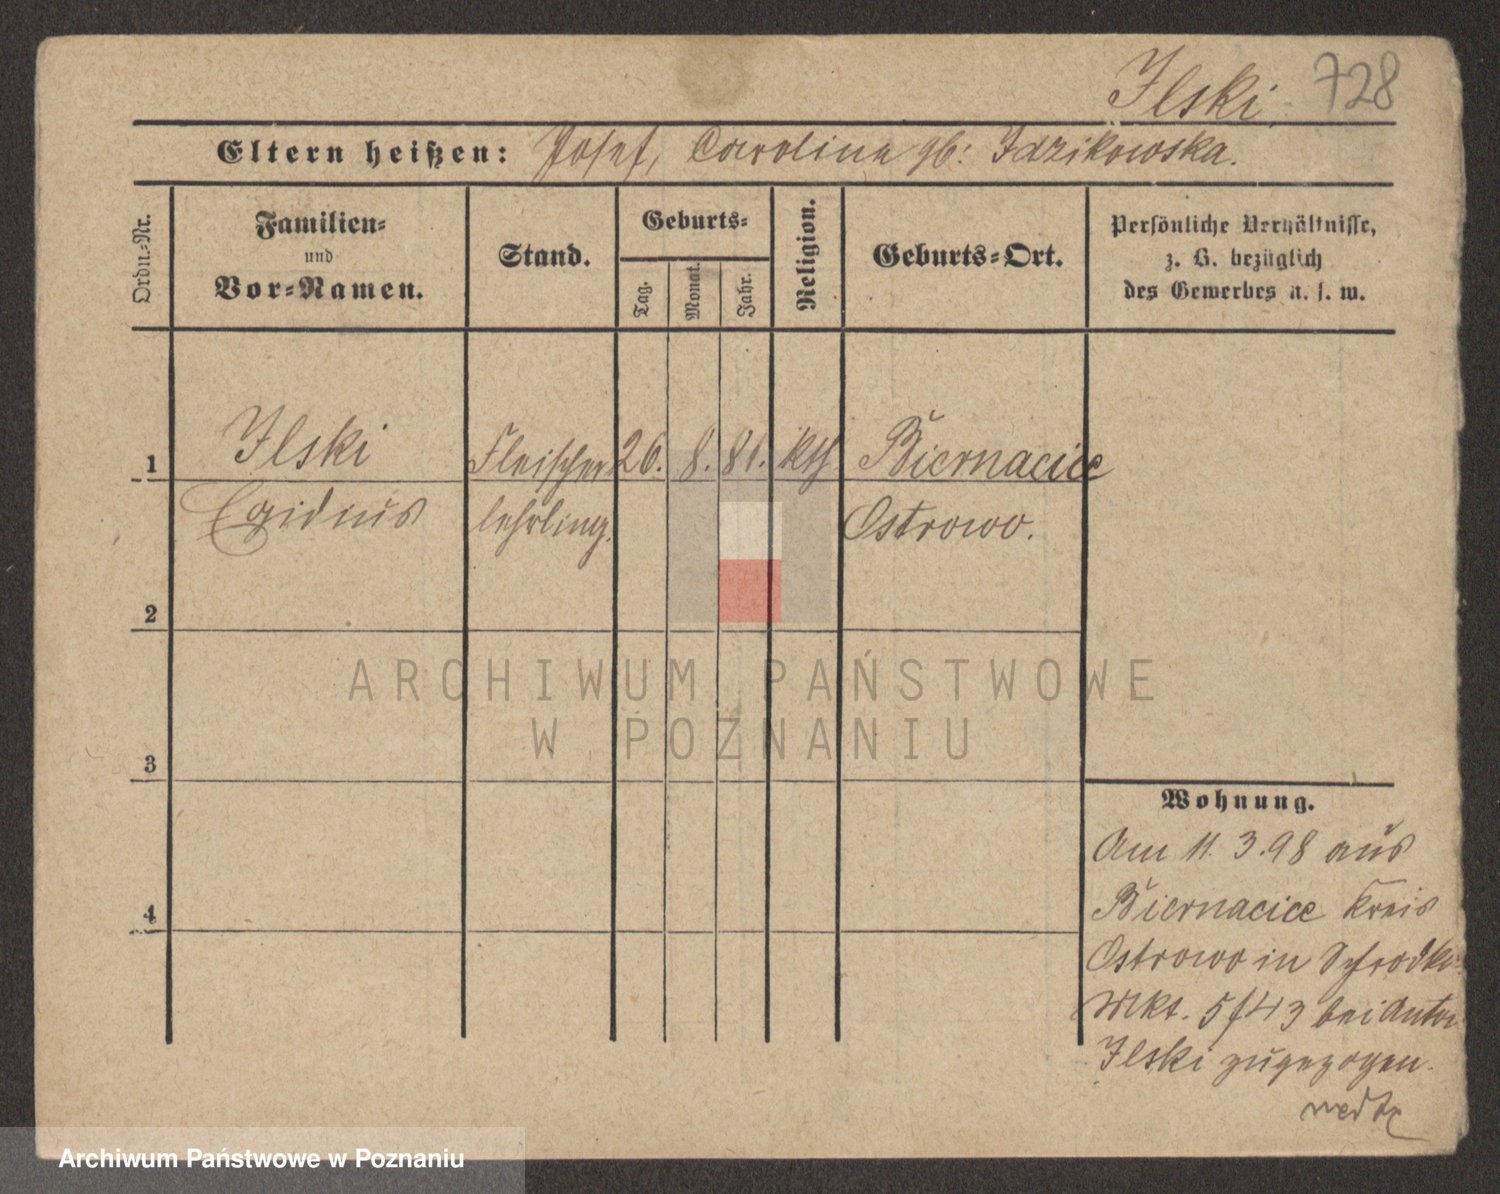 Ilski. 728
Eltern heißen: Josef, Carolina gb: Idzikowska.
Ordn.-Nr.
Familien-
und
Vor-Namen.
Stand.
Geburts-
Tag.
Monat.
Jahr.
Religion.
Geburts-Ort.
Persönliche Verhältnisse,
z. B. bezüglich
des Gewerbes u. s. w.
1 Ilski Fleischer 26. 8. 81. kth Biernacice
Egidius lehrling. Ostrowo.
2
3
4
ARCHIWUM PAŃSTWOWE
W POZNANIU
Wohnung.
Am 11.3.98 aus
Biernacice Kreis
Ostrowo in Schrodka
Mkt. 5/43 bei Anton
Ilski zugezogen.
Archiwum Państwowe w Poznaniu